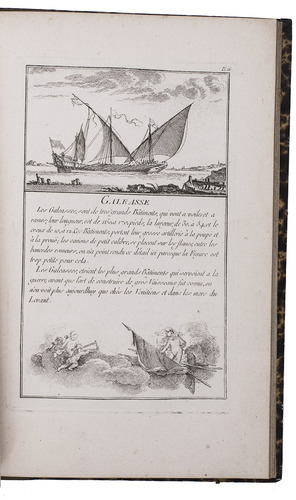 Pl. 
GALEASSE
Les Galeasses, sont de tres grandes Bâtiments, qui vont a voiles et a
rames; leur longueur, est de 160 a 170 pieds, la largeur, de 30, a 34, et le
creux de 10, a 12. Ces Bâtiments, portent leur grosse artillerie à la poupe et
à la proüe; les canons de petit calibre, se placent sur les flancs, entre les
bancs des rameurs, on n'a point rendu ce détail ici parceque la Figure est
trop petite pour cela.
Les Galeasses, étoient les plus grands Bâtiments qui servoient a la
guerre, avant que l'art de construire de gros Vaisseaux fut connu, on
n'en voit plus aujourd'huy que chés les Vénitiens et dans les mers du
Levant.